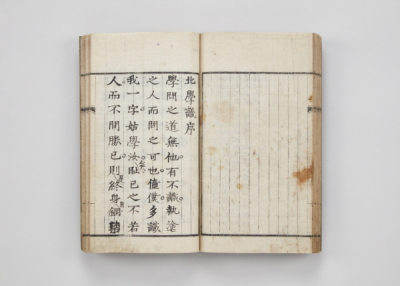 北學議序
學問之道無他有不識執塗
之人而問之可也僮僕多識
我一字姑學汝恥己之不若
人而不問勝己則終身錮